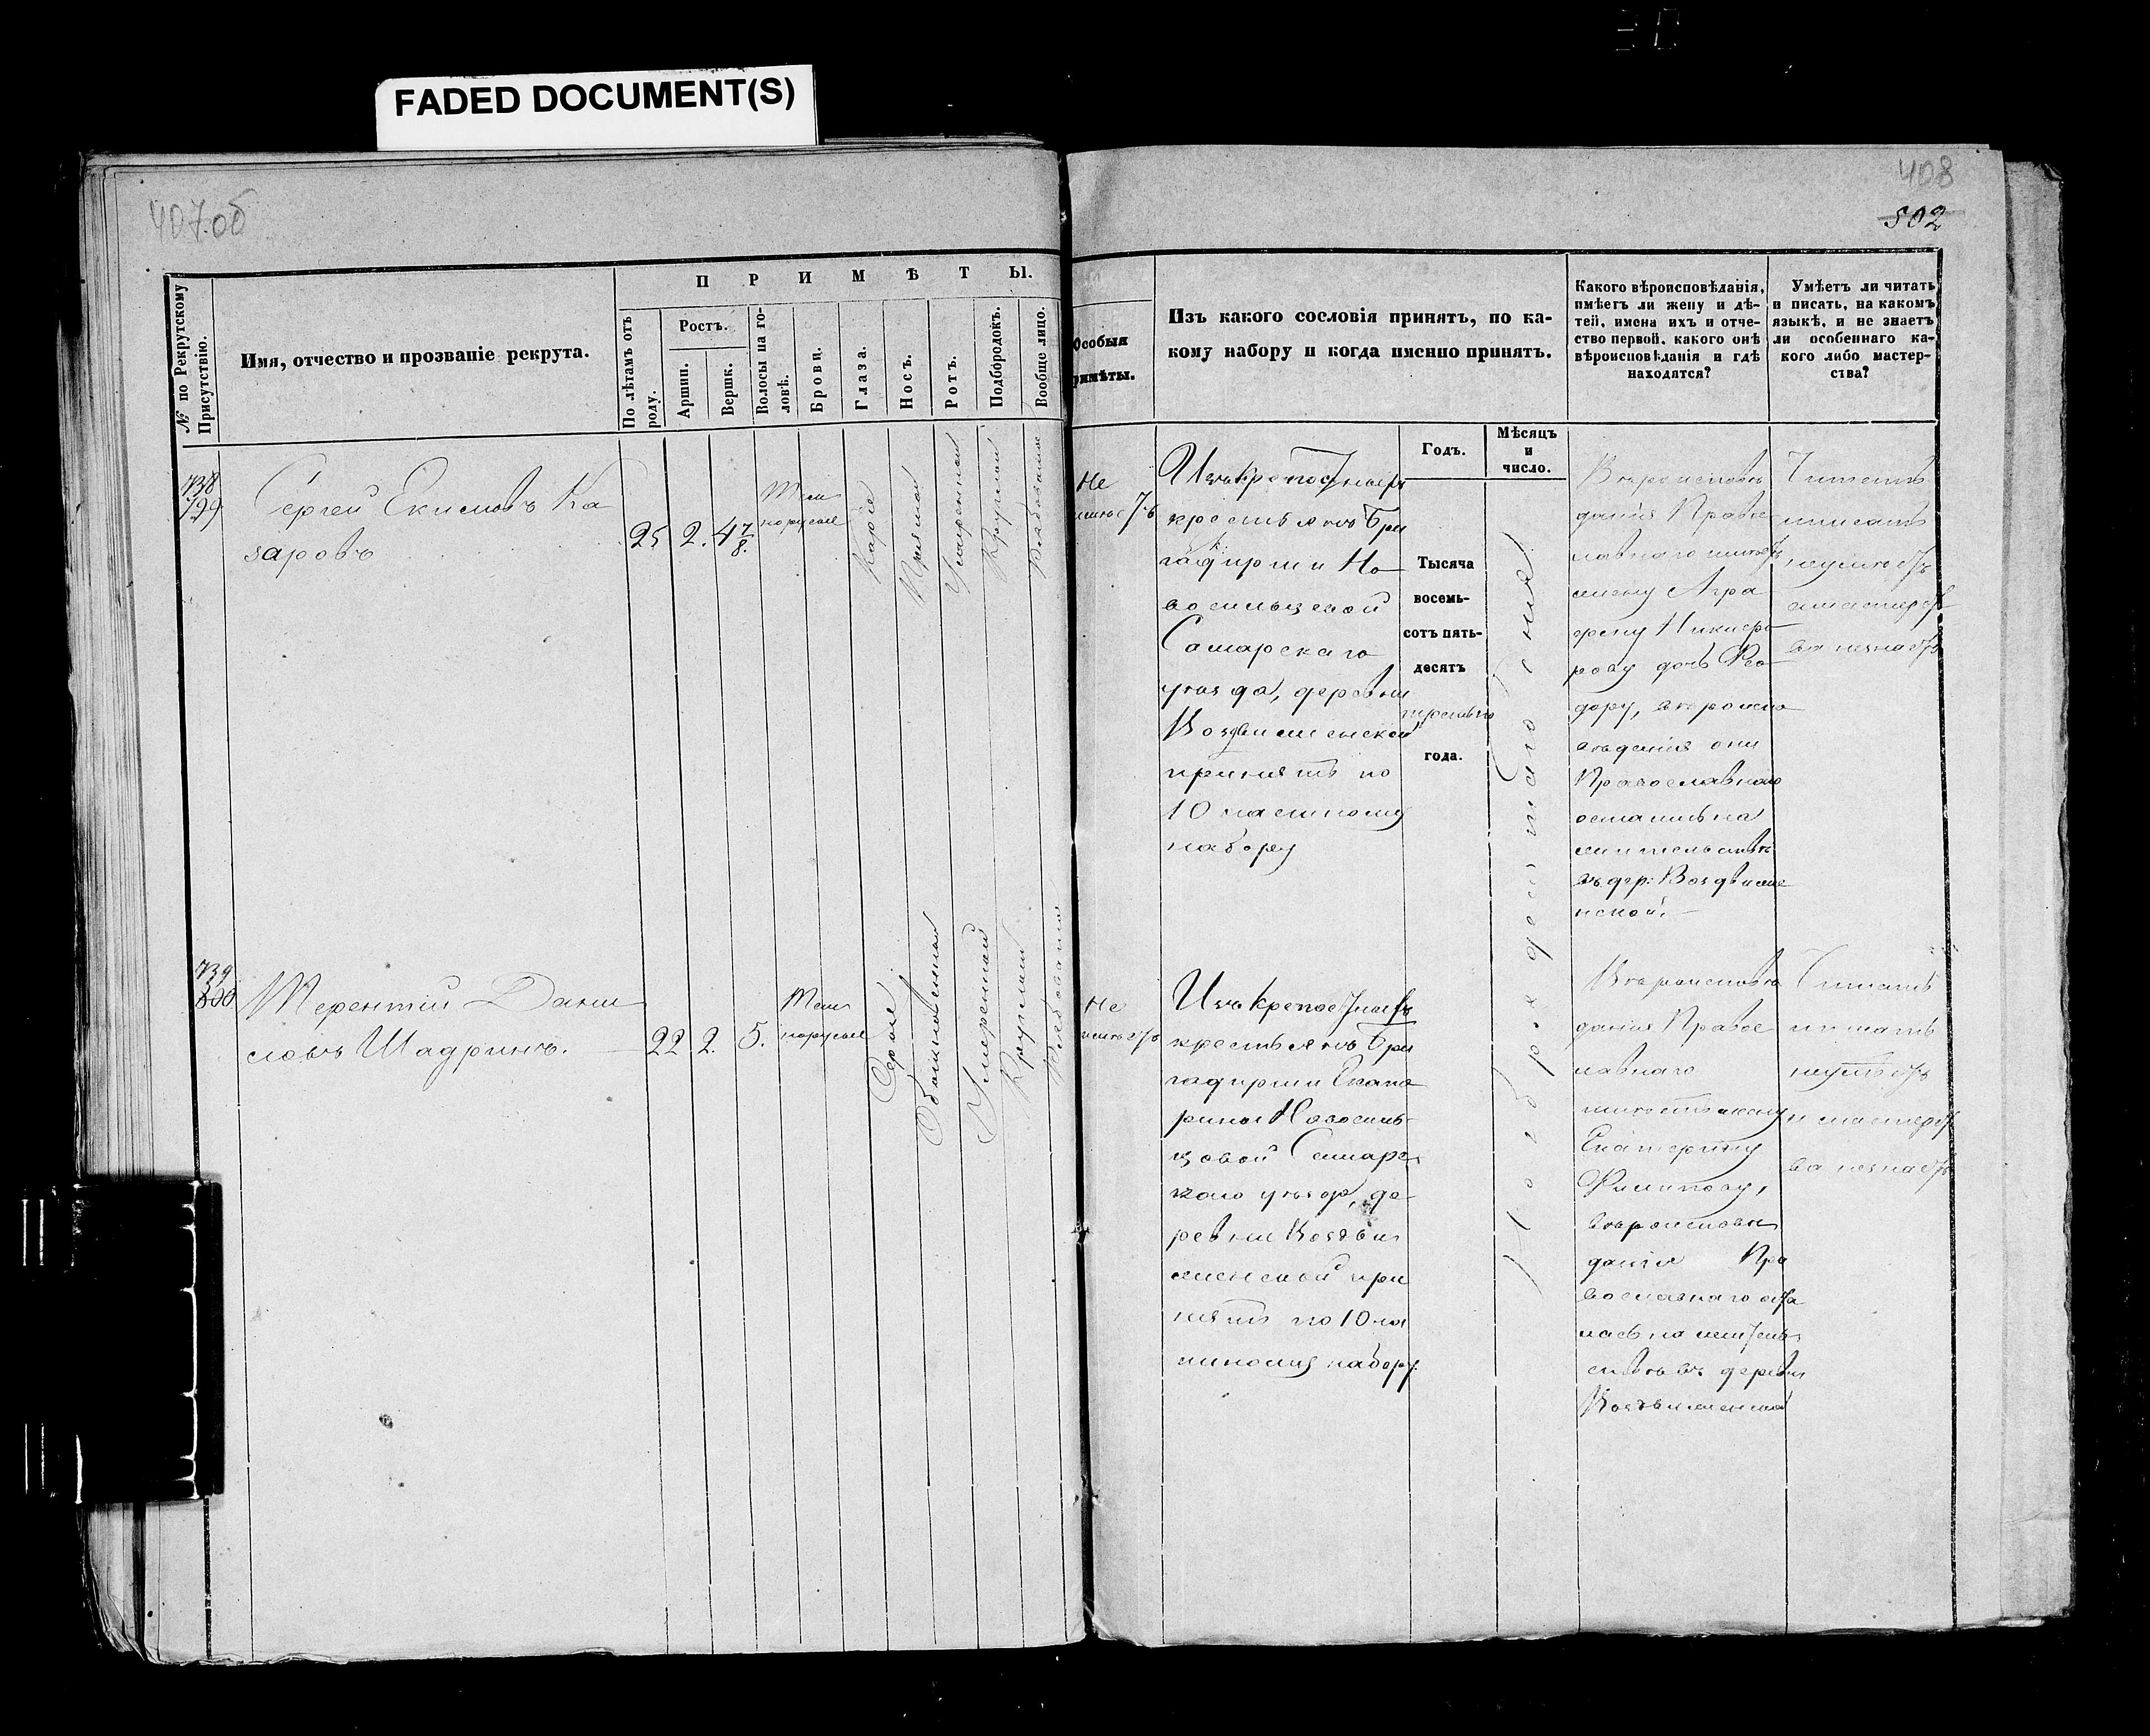 FADED DOCUMENT(S)
407 об
408
502
№ по Рекрутскому Присутствію.
Имя, отчество и прозваніе рекрута.
ПРИМѢТЫ.
По лѣтамъ отъ роду.
Ростъ.
Аршин.
Вершк.
Волосы на головѣ.
Брови.
Глаза.
Носъ.
Ротъ.
Подбородокъ.
Вообще лицо.
Особыя
примѣты.
Изъ какого сословія принятъ, по ка-
кому набору и когда именно принятъ.
Годъ.
Мѣсяцъ
и
число.
Какого вѣроисповѣданія,
имѣетъ ли жену и дѣ-
тей, имена ихъ и отче-
ство первой, какого онѣ
вѣроисповѣданія и гдѣ
находятся?
Умѣетъ ли читать
и писать, на какомъ
языкѣ, и не знаетъ
ли особеннаго ка-
кого либо мастер-
ства?
738
799
Сергей Екимовъ Ка
заровъ
25
2.
4 7/8.
Тем
норусые
Карие
Прямой
Умеренной
Круглой
Рябоватое
Не
имѣетъ
Изъ крепостныхъ
крестьянъ Бри
гадирши Но
восильцовой
Самарскаго
уѣзда, деревни
Воздвиженской
принятъ по
10 частному
набору
Тысяча
восемь-
сотъ пять-
десятъ
третьяго
года.
Ноября десятаго дня
Вѣроисповѣ
данія Правос
лавнаго имѣетъ
жену Агра
фену Никифо
рову дочь Фео
дору, вѣроиспо
вѣданія они
Православнаго
остались на
жительствѣ
въ дер: Воздвиже
нской.
Читать
писать
неумѣетъ
а мастерст
ва незнаетъ
739
800
Терентій Дани
ловъ Шадринъ.
22
2.
5.
Тем
норусые
Серые
Обыкновенной
Умеренной
Круглой
Не
имѣетъ
Изъ крепостныхъ
крестьянъ Бри
гадирши Екате
рины Новосиль-
цовой Самарс
каго уѣзда, де-
ревни Воздви
женской при
нятъ по 10 ча
стному набору.
Вѣроисповѣ
данія Правос
лавнаго
имѣетъ жену
Екатерину
Филипову,
вѣроисповѣ
данія Пра
вославнаго оста
лась на житель
ствѣ въ деревни
Воздвиженской
Читать
писать
неумѣетъ
и мастерст
ва незнаетъ